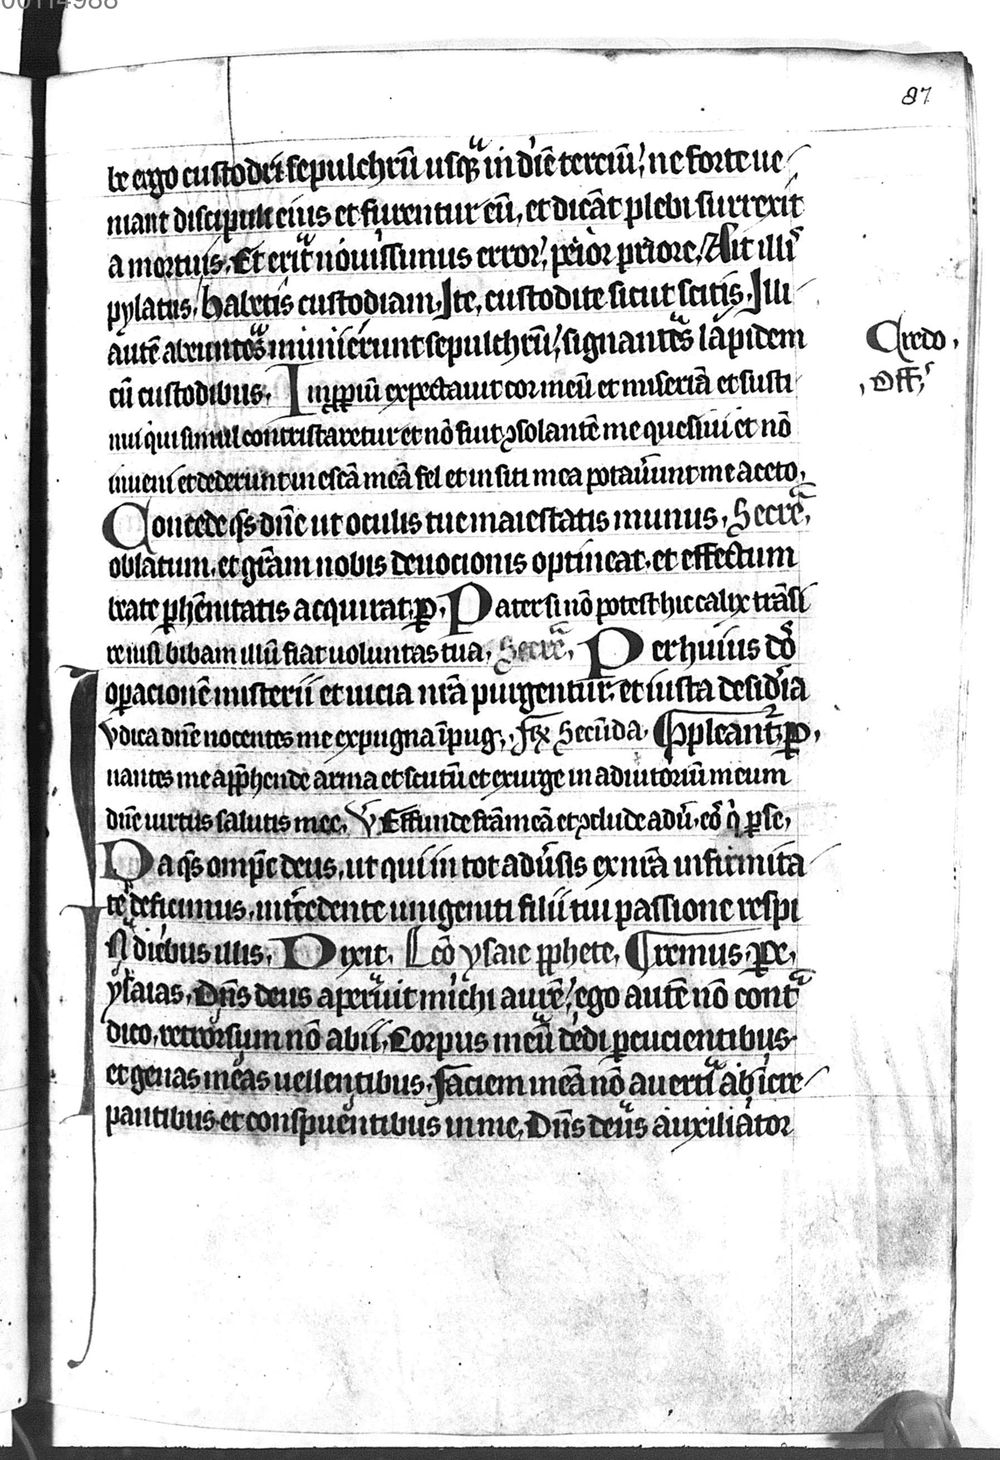 00114988
87
be ergo custodiri sepulchrū usq̄ in diē terciū, ne forte ue
niant discipuli eius et furentur eū, et dicāt plebi surrexit
a mortuis. Et erit nouissimus error peior priore. Ait illis
pylatus, habetis custodiam. Ite, custodite sicut scitis. Illi
autē abeuntes munierunt sepulchrū, signantes lapidem
cū custodibus. Inpropiū expectauit cor meū et miseriā et susti
Credo.
Off̄
nui qui simul contristaretur et nō fuit ꝯsolantē me quesiui et nō
inueni et dederunt in escā meā fel et in siti mea potauerunt me aceto.
Concede qs dn̄e ut oculis tue maiestatis munus. Secrē.
oblatum, et grām nobis deuocionis optineat, et effectum
beate phēnitatis acquirat. p̄. Pater si nō potest hic calix trāsi
re nisi bibam illū fiat uoluntas tua. Secrē. Per huius dō
opacionē misterii et uicia nrā purgentur et iusta desidia
Iudica dn̄e nocentes me expugna īpug. fr̄ Secūda. Cōpleant̄ p̄.
nantes me apphende arma et scutū et exurge in adiutoriū meum
dn̄e uirtus salutis mee. V̄ Effunde frāmeā et ꝯclude adū. eō q̄ pse.
Da qs omp̄c deus, ut qui in tot adūsis ex nrā infirmita
te deficimus, intcedente unigeniti filii tui passione respi
In diebus illis. Dixit. Lcō ysaie pphete. Cremus. p̄ e.
ysaias. Dn̄s deus aperuit michi aurē, ego autē nō cont̄
dico, retrorsum nō abii. Corpus meū dedi pcucientibus
et genas meas uellentibus. faciem meā nō auerti ab icre
pantibus et conspuentibus in me. Dn̄s deus auxiliator